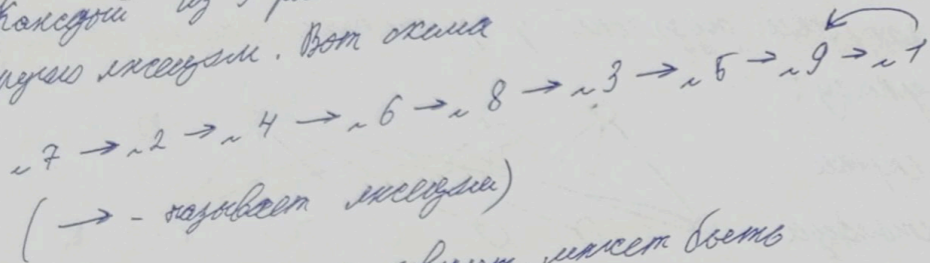 Каждый из
лжецом. Вот схема
~7 → ~2 → ~4 → ~6 → ~8 → ~3 → ~5 → ~9 → ~1
( → - называет лжецом)
может быть